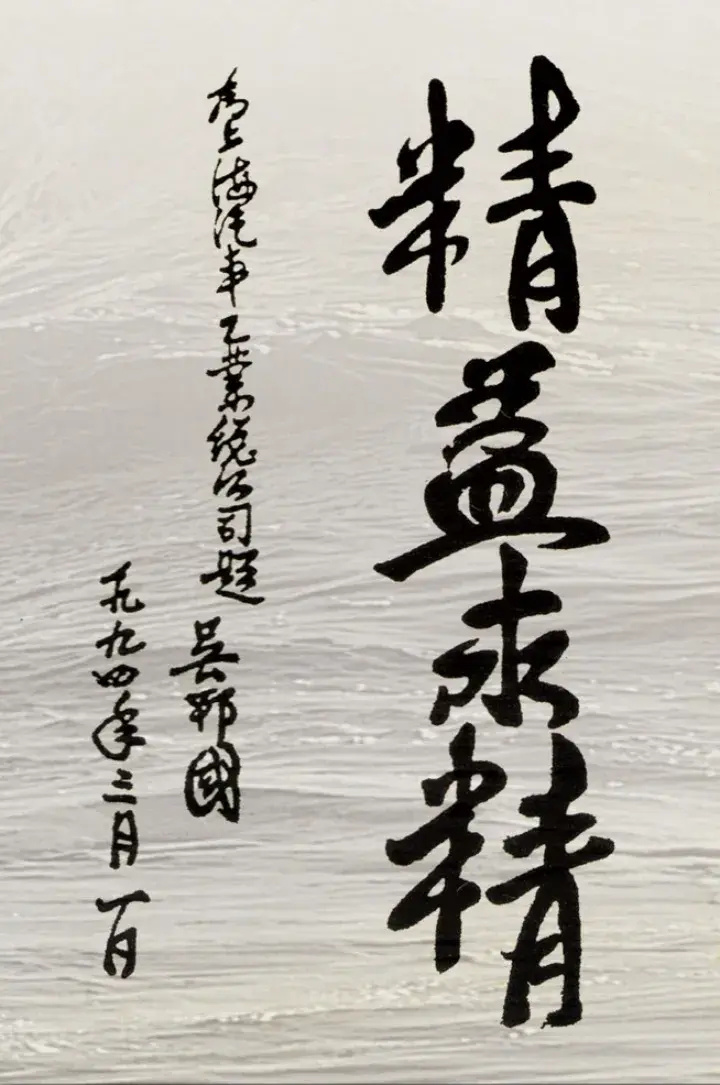 精益求精
为上海汽车工业总公司题
吴邦國
一九九四年三月一日